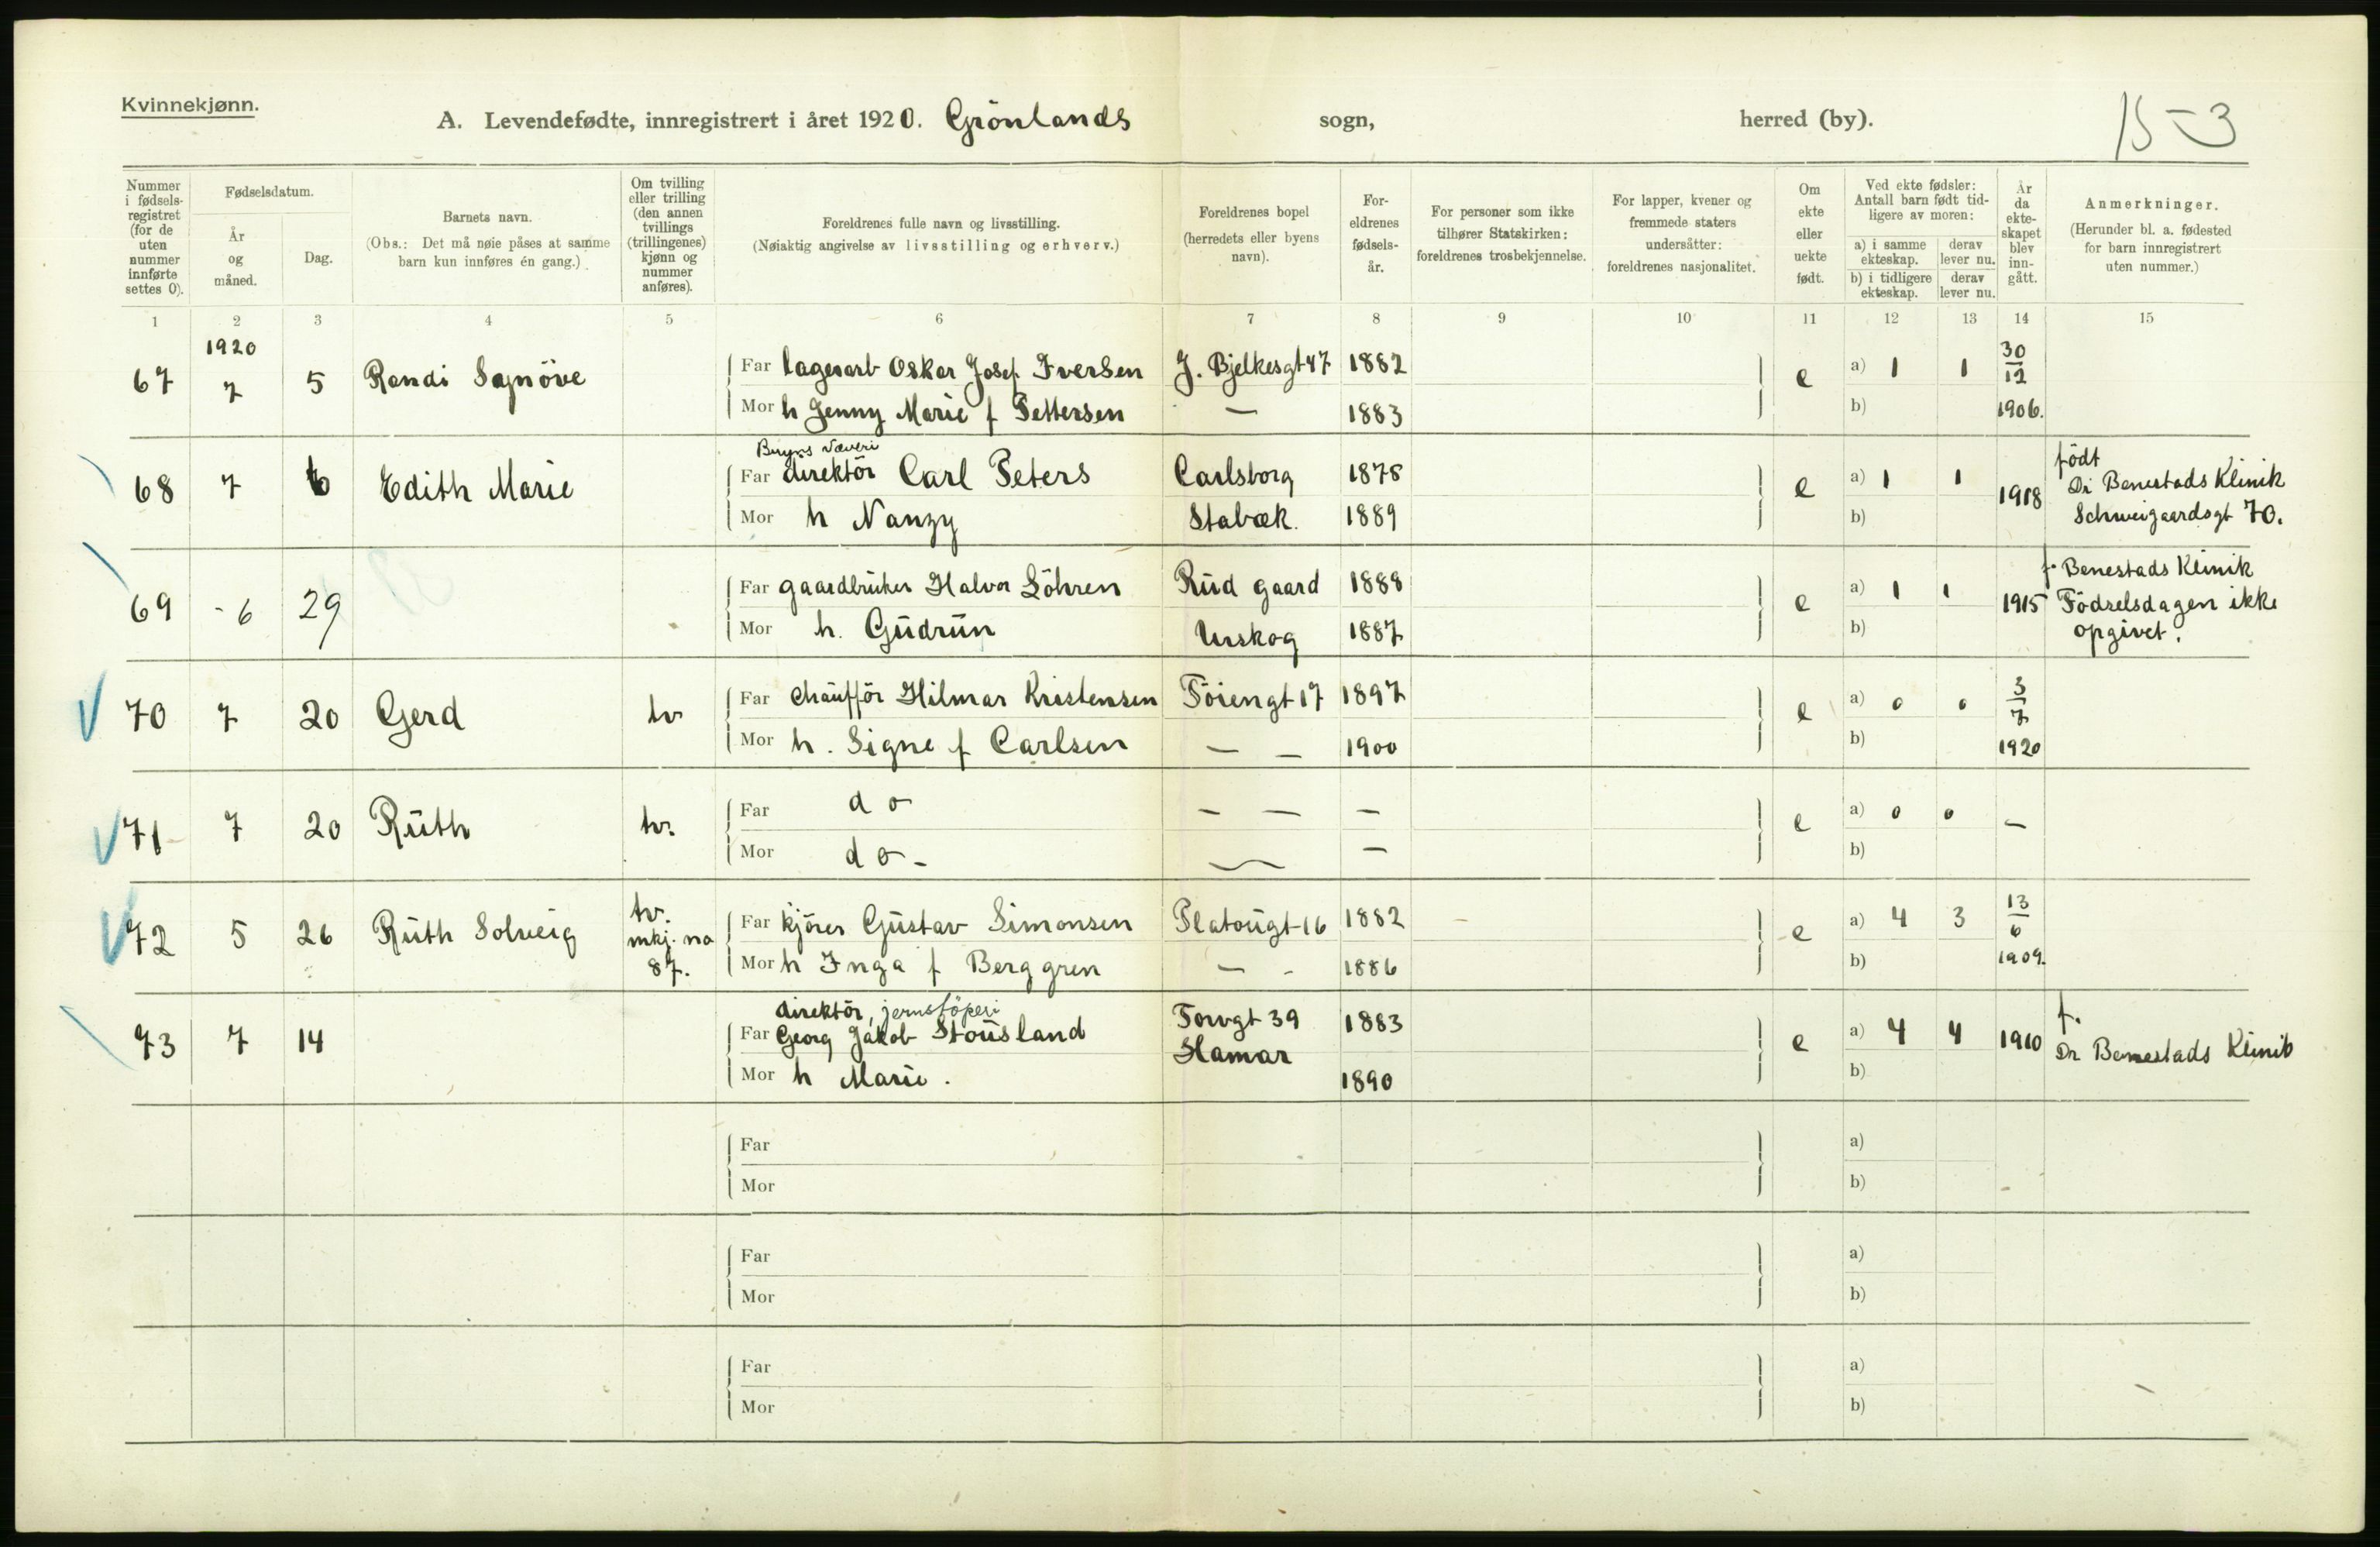 Kvinnekjønn.
A. Levendefødte, innregistrert i året 1920. Grönlands sogn, herred (by). 15-3
Nummer i fødsels-registret (for de uten nummer innførte settes 0).
Fødselsdatum.
År og måned.
Dag.
Barnets navn.
(Obs.: Det må nøie påses at samme barn kun innføres én gang.)
Om tvilling eller trilling (den annen tvillings (trillingenes) kjønn og nummer anføres).
Foreldrenes fulle navn og livsstilling.
(Nøiaktig angivelse av livsstilling og erhverv.)
Foreldrenes bopel (herredets eller byens navn).
For-eldrenes fødsels-år.
For personer som ikke tilhører Statskirken: foreldrenes trosbekjennelse.
For lapper, kvener og fremmede staters undersåtter: foreldrenes nasjonalitet.
Om ekte eller uekte født.
Ved ekte fødsler: Antall barn født tid-ligere av moren:
a) i samme ekteskap.
derav lever nu.
b) i tidligere ekteskap.
derav lever nu.
År da ekte-skapet blev inn-gått.
Anmerkninger.
(Herunder bl. a. fødested for barn innregistrert uten nummer.)
1 2 3 4 5 6 7 8 9 10 11 12 13 14 15
1920
67 7 5 Randi Synöve
Far lagerarb Oskar Josef Iversen J. Bjelkesgt 47 1882
Mor h Jenny Marie f Pettersen — 1883
e a) 1 1 30/12 1906.
b)
68 7 6 Edith Marie
Bryns Væveri
Far direktör Carl Peters Carlsborg 1878
Mor h Nanzy Stabæk. 1889
e a) 1 1 1918
b)
födt
Dr Benestads Klinik
Schweigaardsgt 70.
69 - 6 29
Far gaardbruker Halvor Löhren Rud gaard 1888
Mor h. Gudrun Urskog 1887
e a) 1 1 1915
b)
f. Benestads Klinik
Födselsdagen ikke
opgivet.
70 7 20 Gerd tv
Far chaufför Hilmar Kristensen Töiengt 17 1897
Mor h. Signe f Carlsen — — 1900
e a) 0 0 3/7 1920
b)
71 7 20 Ruth tv.
Far do — — —
Mor do - — —
e a) 0 0 —
b)
72 5 26 Ruth Solveig tv. mkj. no 87.
Far kjörer Gustav Simonsen Platougt 16 1882
Mor h Inga f Berggren — - 1886
e a) 4 3 13/6 1909.
b)
73 7 14
direktör, jernstöperi
Far Georg Jakob Stousland Torvgt 39 1883
Hamar
Mor h Marie. 1890
e a) 4 4 1910
b)
f.
Dr Benestads Klinik
Far a)
Mor b)
Far a)
Mor b)
Far a)
Mor b)